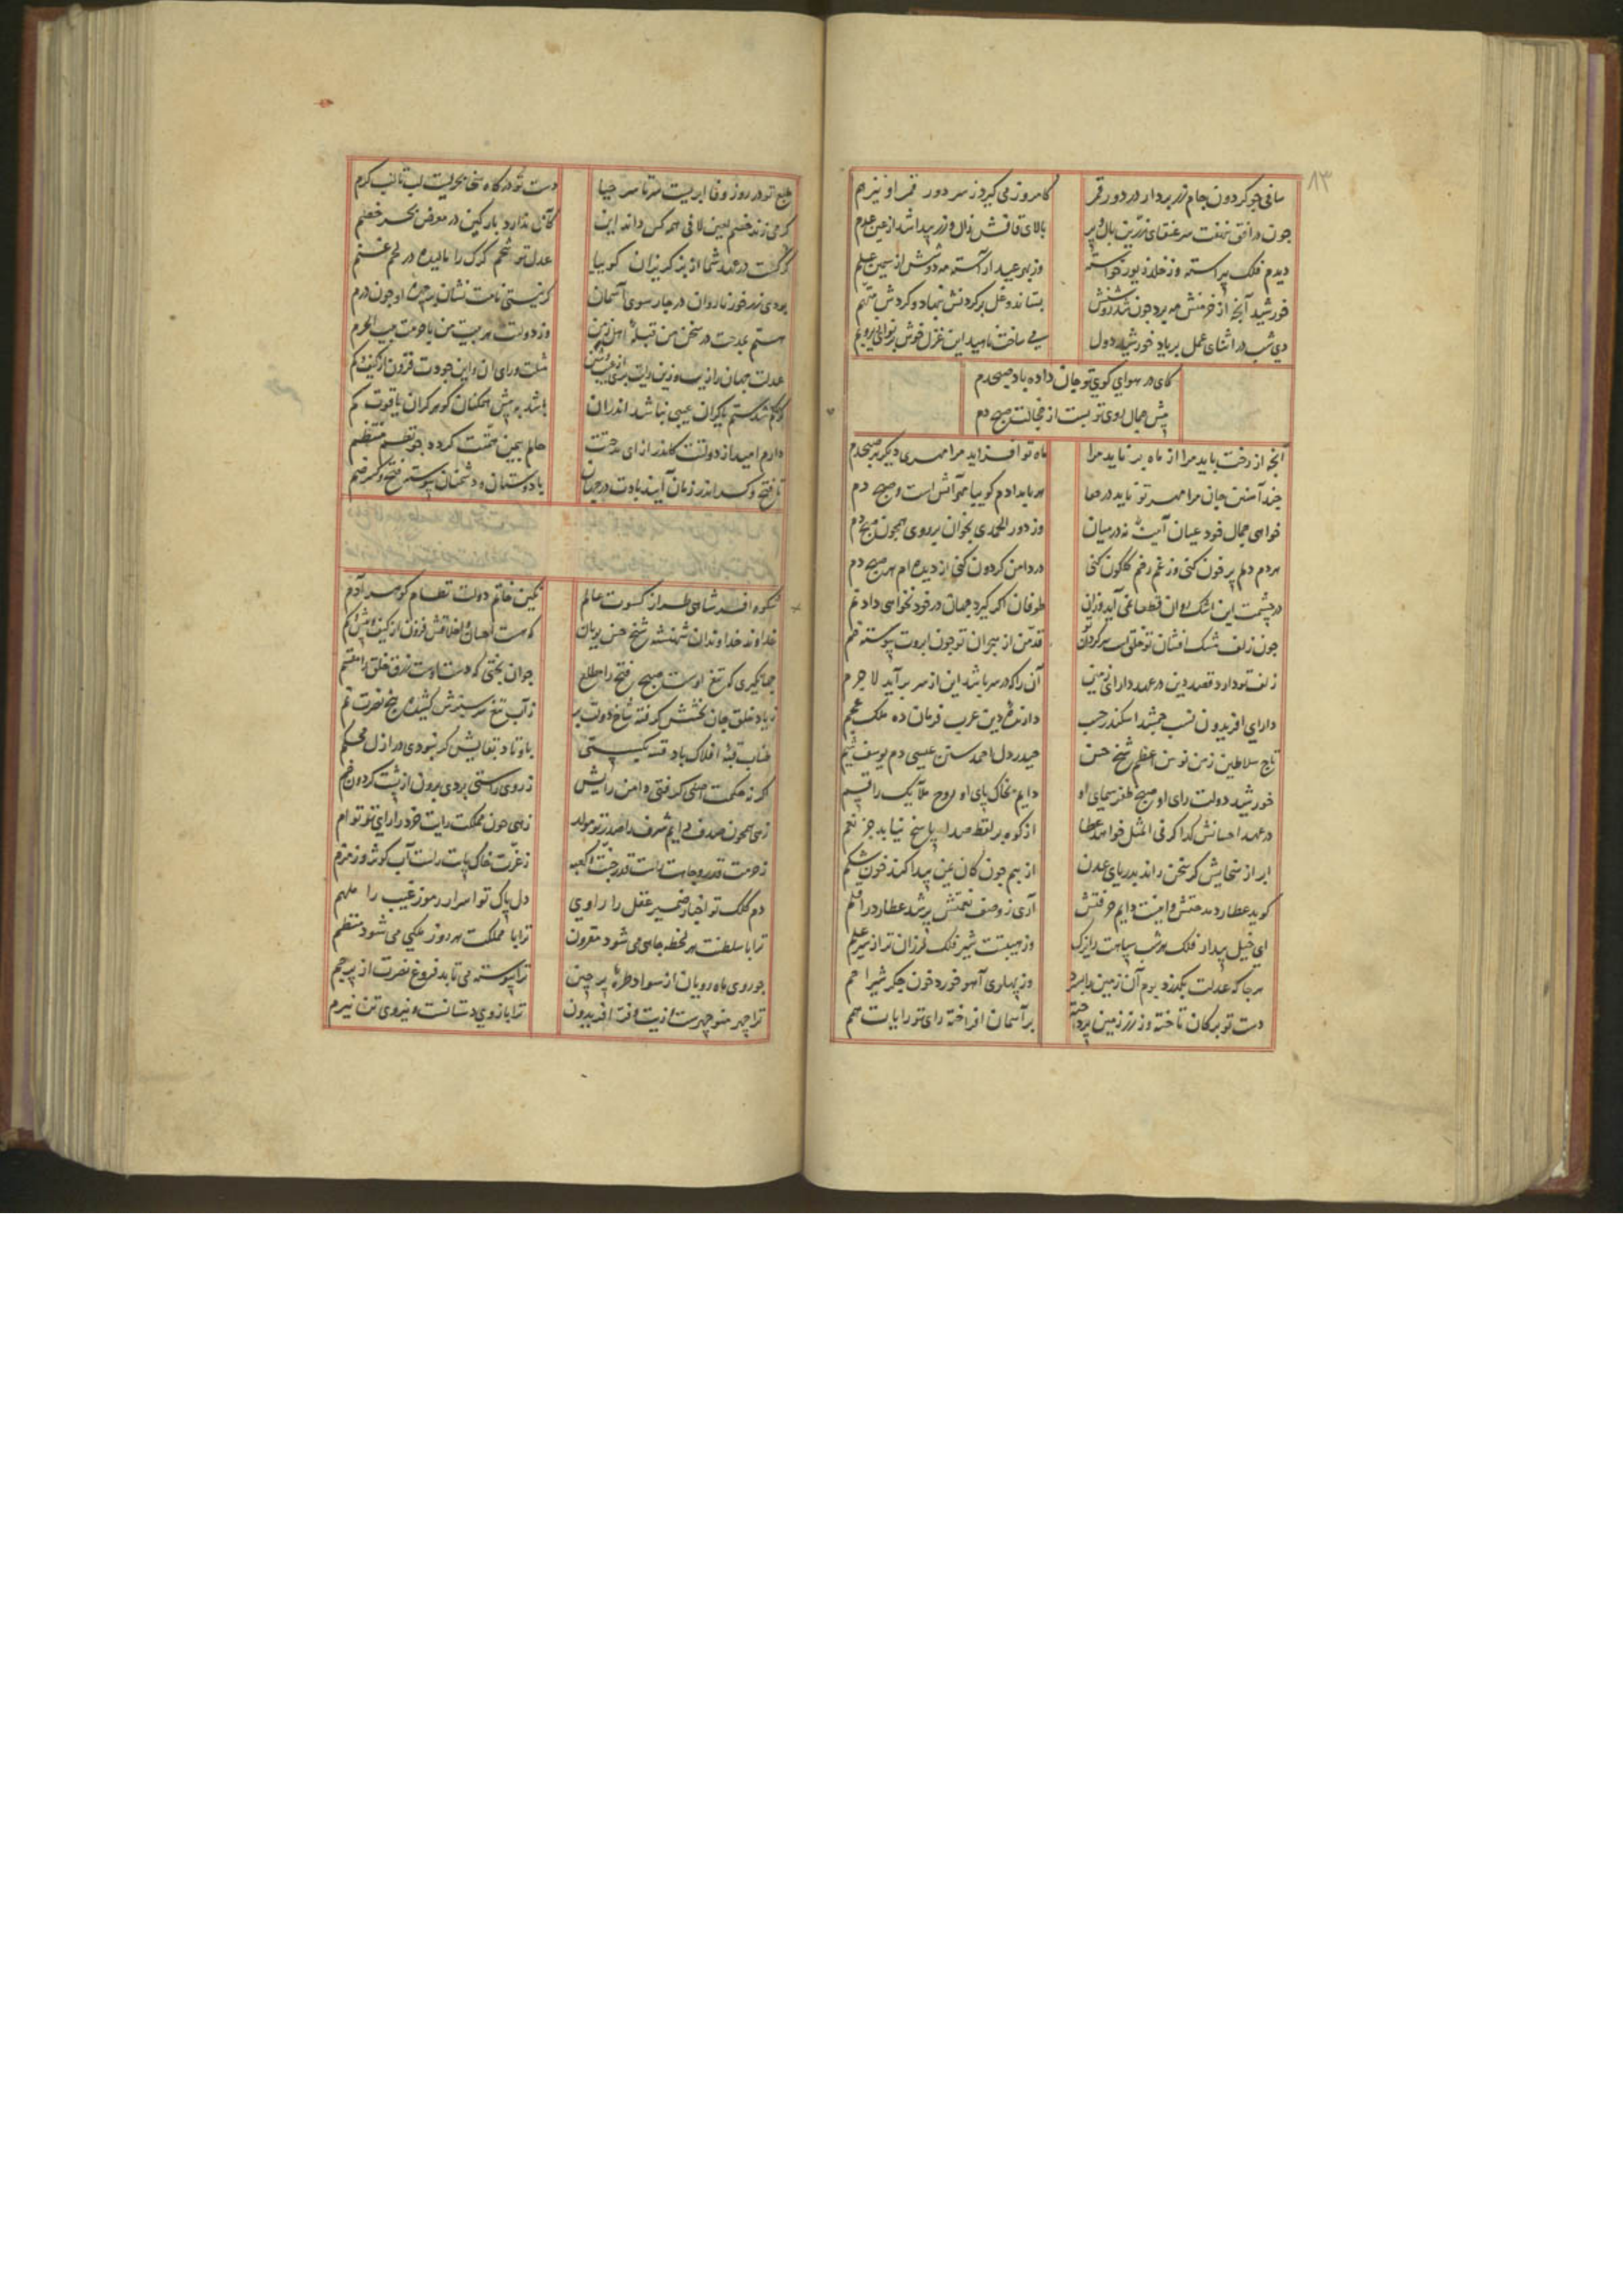 ۸۳
ساقی چو کردون جام زر بردار در دور قمر کامروز می کیرد ز سر دور قمر او نیز هم
چون در افق بنهفت سر عنقای زرین بال و پر بالای قافش زال زر پیدا شد از عین علم
دیدم فلک پیراسته وز خلد زیور خواسته وز بهر عید آراسته مه دوشش از سیمین علم
خورشید آنچ از خرمنش مه برد چون شد روشنش بستاند و غل بر کردنش بنهاد و کردش متهم
دی شب در اثنای عمل بر یاد خورشید دول می ساخت ناهید این غزل خوش بر نوای زیر و بم
کای در هوای کوی تو جان داده باد صبحدم
پیش جمال روی تو بست از خجالت صبح دم
آنچ از رخت باید مرا از ماه بر ناید مرا ماه تو افزاید مرا مهری دیکر هر صبحدم
چند آهنین جان مرا مهر تو تابد در هوا هر بامدادم کوییا هم آتش است و صبح دم
خواهی جمال خود عیان آیینه نه در میان وز دور الحمدی بخوان بر روی همچون صبح دم
هر دم دلم پر خون کنی وز غم رخم کلکون کنی در دامن کردون کنی از دیده ام هر صبح دم
در چشمت این اشک روان قطعا نمی آید وزان طوفان اکر کیرد جهان در خود نخواهی داد نم
چون زلف مشک افشان تو خلقی است سرکردان تو قد من از هجران تو چون ابروت پیوسته خم
زلف تو دارد قصد دین در عهد دارای زمین آن را که در سر باشد این از سر برآید لا جرم
دارای افریدون نسب جمشید اسکندر حسب دارنده دین عرب فرمان ده ملک عجم
تاج سلاطین زمن نوین اعظم شیخ حسن حیدر دل احمد سنن عیسی دم یوسف شیم
خورشید دولت رای او صبح ظفر سیمای او دایم بخاک پای او روح ملایک را قسم
در عهد احسانش کدا کر فی المثل خواهد عطا از کوه بر لفظ صدا پاسخ نیابد جز نعم
ابر از سخایش کر سخن راند بدریای عدن از بیم چون کان یمن پیدا کند خون در شکم
کوید عطارد مدحتش وافیست دایم حرفتش آری ز وصف نعمتش پر شد عطارد را قلم
ای خیل پیدار فلک هر شب سپاهت را یزک وز هیبتت شیر فلک لرزان تر از شیر علم
هر جا که عدلت بکذرد بوم آن زمین را نسپرد وز پهلوی آهو خورد خون جکر شیر اجم
دست تو بر کان تاخته وز زر زمین پرداخته بر آسمان افراخته رای تو رایات همم
طبع تو در روز وفا ابریست سر تا سر حیا دست تو در کاه سخا بحریست لب تا لب کرم
کر می زند خصم لعین لافی همه کس داند این کانی ندارد بارکین در معرض بحر خضم
کر کشت در عهد شما از بز کریزان کوییا عدل تو شحم کرک را مالیده در لحم غنم
بودی زر خور ناروان در چارسوی آسمان کر نیستی نامت نشان بر چهره او چون درم
هستم بمدحت در سخن من قبله اهل زمن وز دولتت هر بیت من با حرمت بیت الحرم
عدلت جهان را زیب و زین رایت مثلت ورای ان و این جودت فزون از کیف و کم
کر کم شد کستم بیکران عیبی نباشد اندران باشد به پیش همکنان کوهر کران یاقوت کم
دارم امید از دولتت کاندر ازای مدحتت حالم بیمن همتت کردد چو نظمم منتظم
تا فتح و کسر اندر زمان آیند بادت در جهان با دوستان و دشمنان پیوسته فتح و کسر ضم
شکوه افسر شاهی طراز کسوت عالم نکین خاتم دولت نظام کوهر آدم
خداوند خداوندان شهنشه شیخ حسن بویان که هست احسان و اخلاقش فزون از کیف و بیش از کم
جهانکیری که تیغ اوست صبح فتح را مطلع جوان بختی که دست اوست رزق خلق را مقسم
ز باد خلق جان بخشش کرفته شاخ دولت بر ز آب تیغ سر سبزش کشیده بیخ نصرت نم
طناب قبه افلاک باد فتنه بکسستی باوتاد بقایش کر نبودی در ازل محکم
کر نه حکمت اصلی کرفتی دامن رایش ز روی راستی بردی برون از پشت کردون خم
زهی همچون صدف دایم شرف را صدر تو مولد زهی چون مملکت رایت خرد را رای تو توام
ز حرمت قدر و جاهت راست قدر جنت و کعبه ز عزت خاک پایت راست آب کوثر و زمزم
دم کلک تو اخبار ضمیر عقل را راوی دل پاک تو اسرار رموز غیب را ملهم
ترا با سلطنت هر لحظه جاهی می شود مقرون ترا با مملکت هر روز ملکی می شود منظم
چو روی ماه رویان از سواد طره پر چین ترا پیوسته می تابد فروغ نصرت از پرچم
ترا چهر منوچهرست و زیب و فر افریدون ترا بازوی دستانست و نیروی تن نیرم